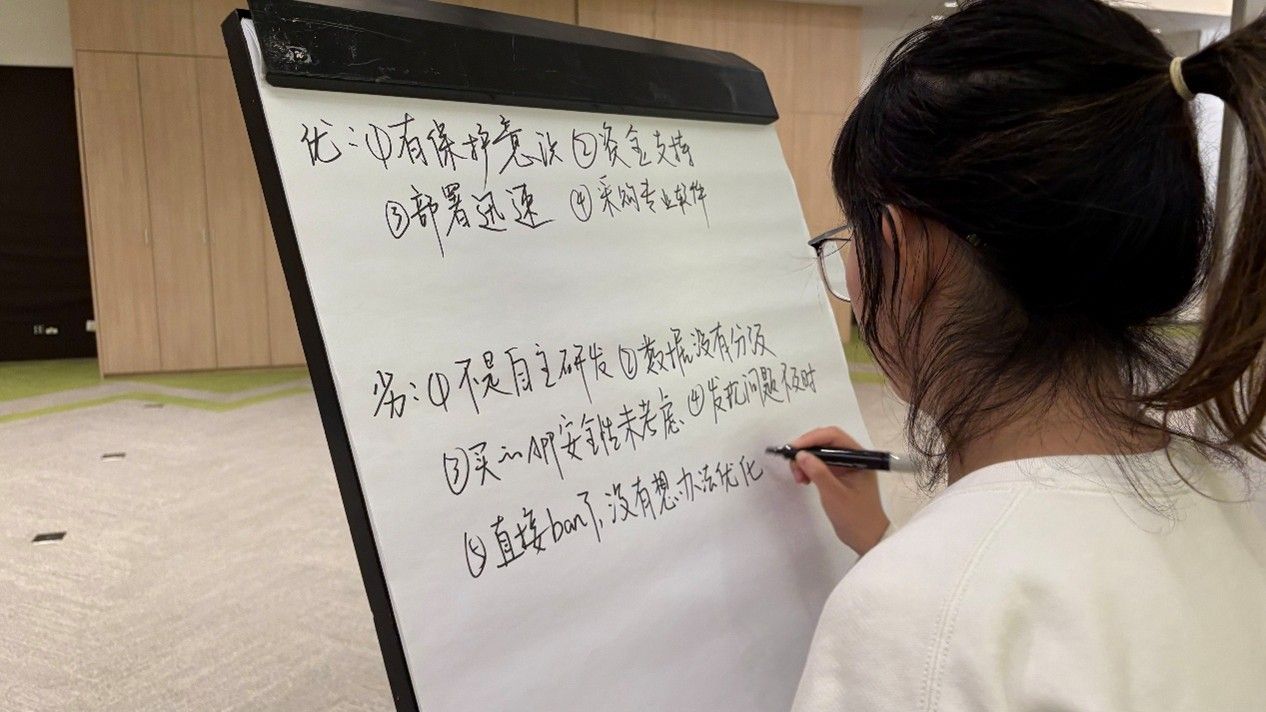 优：①有保护意识 ②资金支持
③部署迅速 ④采购专业软件
劣：①不是自主研发 ②数据没有分级
③买的APP安全性未考虑 ④发现问题不及时
⑤直接ban了，没有想办法优化